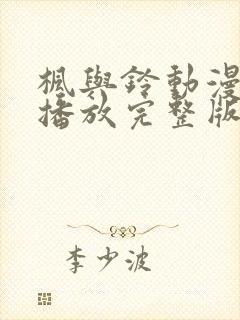 楓與鈴動漫
播放完整版
李少波